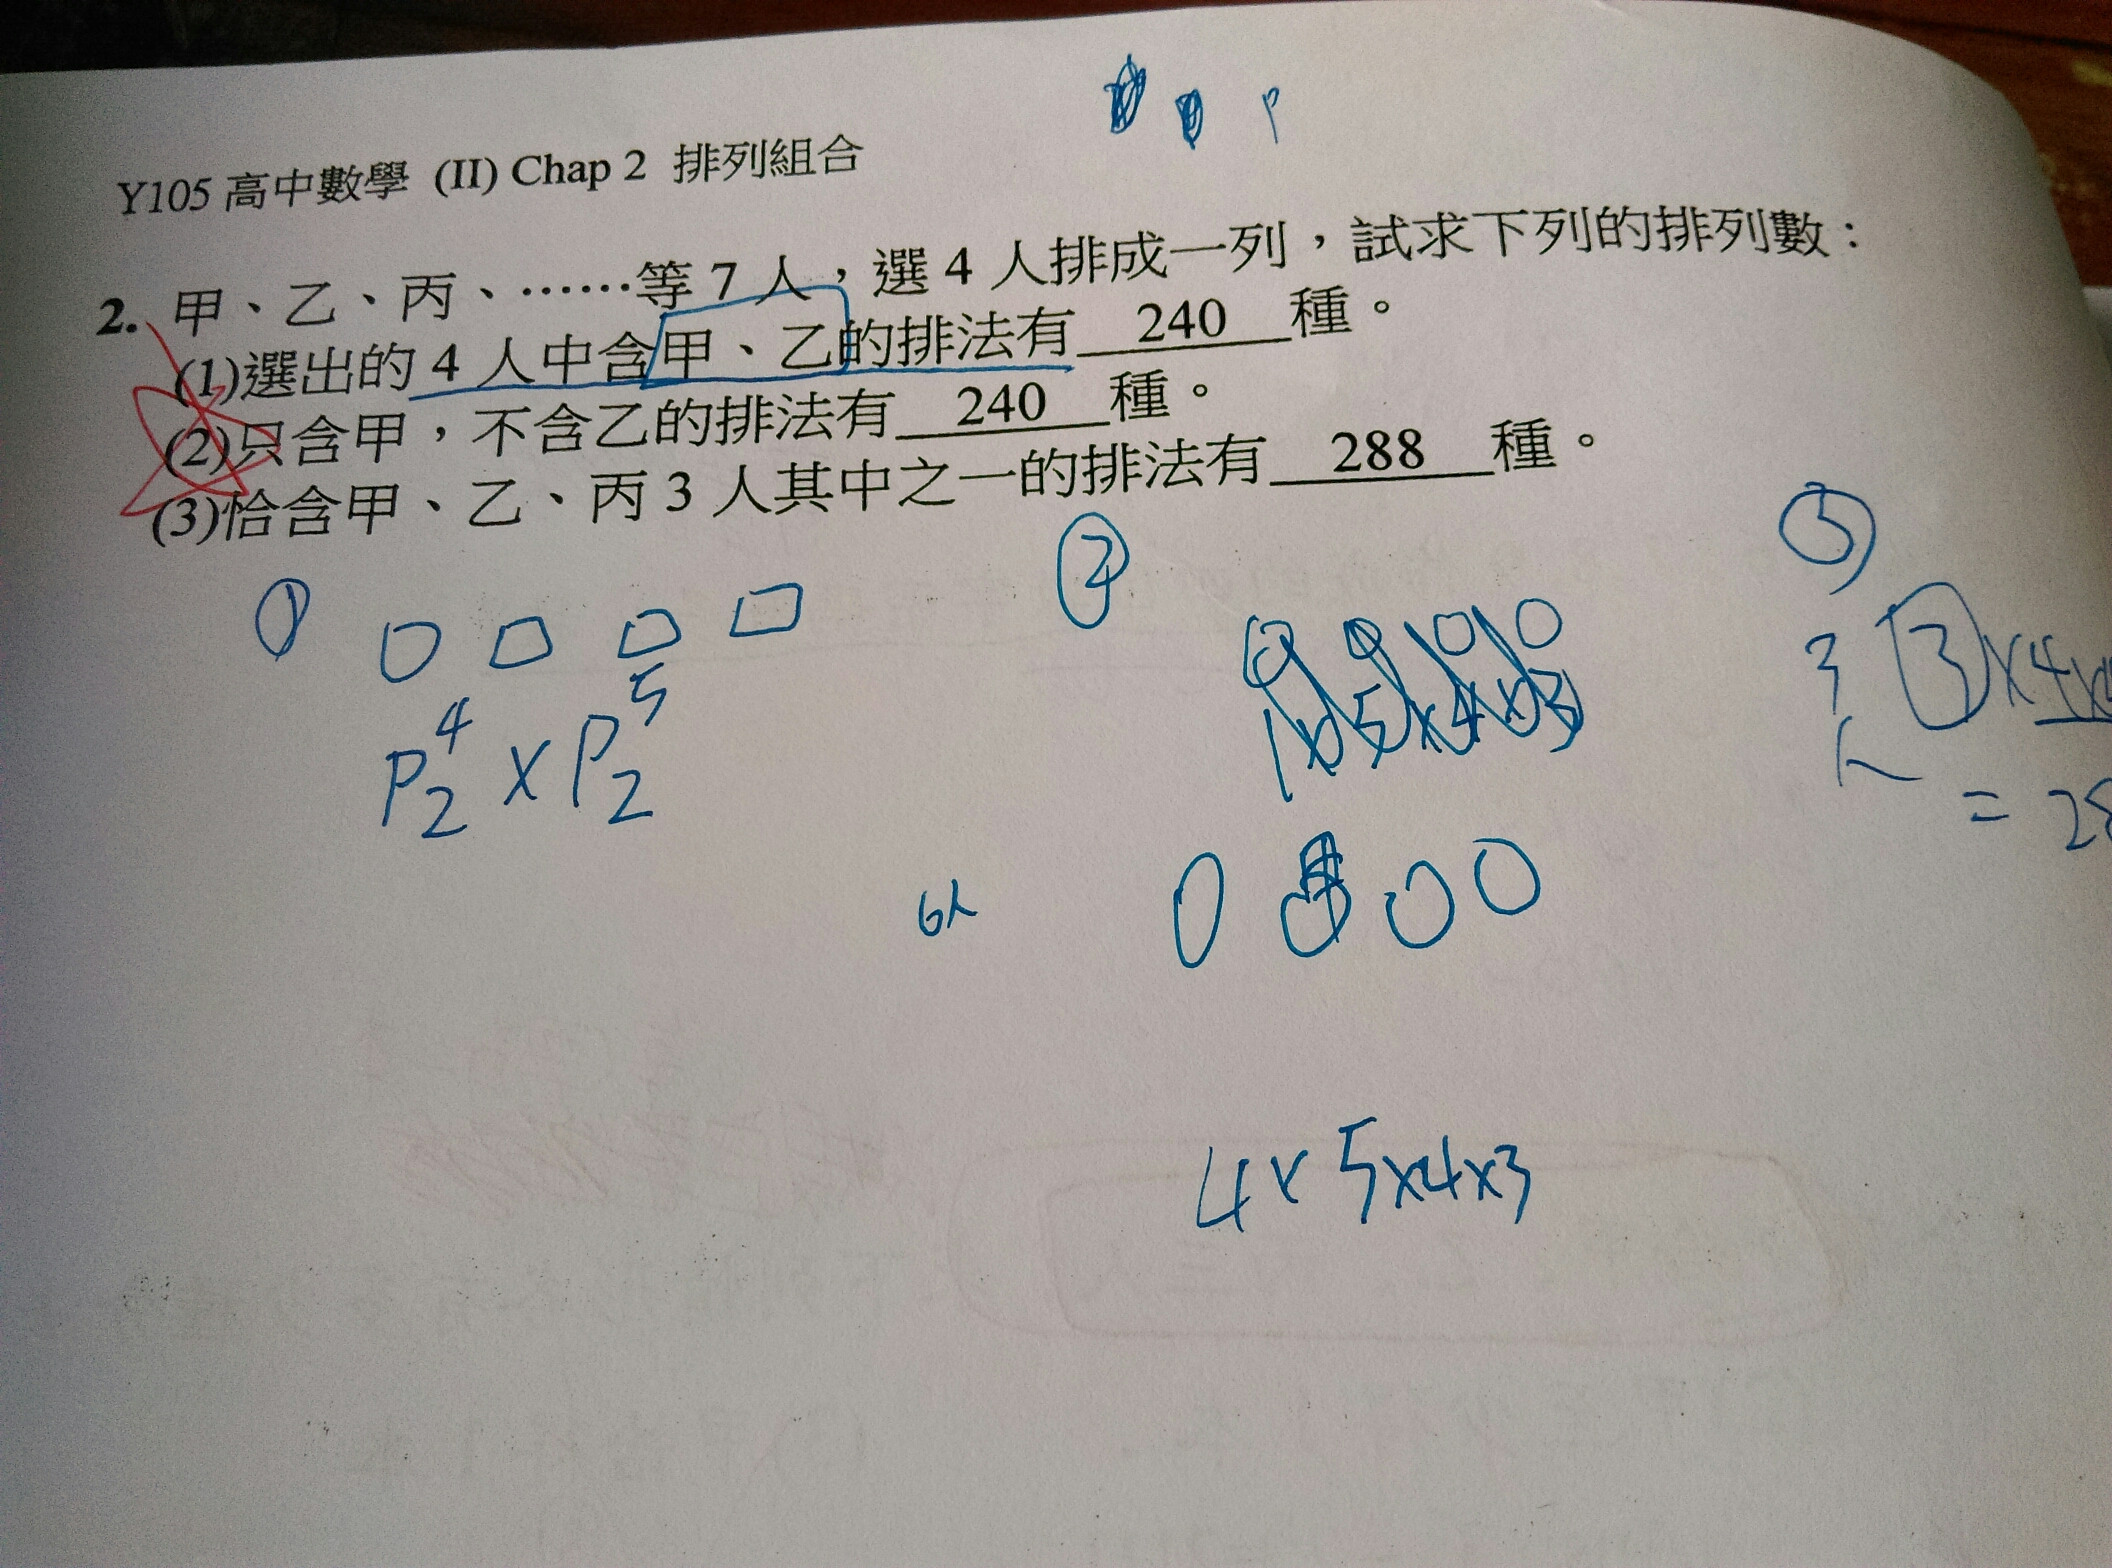 Y105 高中數學 (II) Chap 2 排列組合
2. 甲、乙、丙、……等 7 人，選 4 人排成一列，試求下列的排列數：
(1)選出的 4 人中含甲、乙的排法有 240 種。
(2)只含甲，不含乙的排法有 240 種。
(3)恰含甲、乙、丙 3 人其中之一的排法有 288 種。
① ② ③
P₂⁴ × P₂⁵
1×5×4×3
3×4×
= 28
6人
甲
4×5×4×3